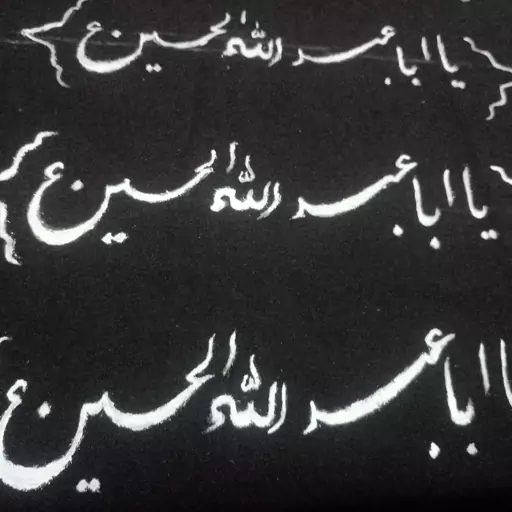 یا ابا عبد الله الحسین ع
یا ابا عبد الله الحسین ع
ا ابا عبد الله الحسین ع